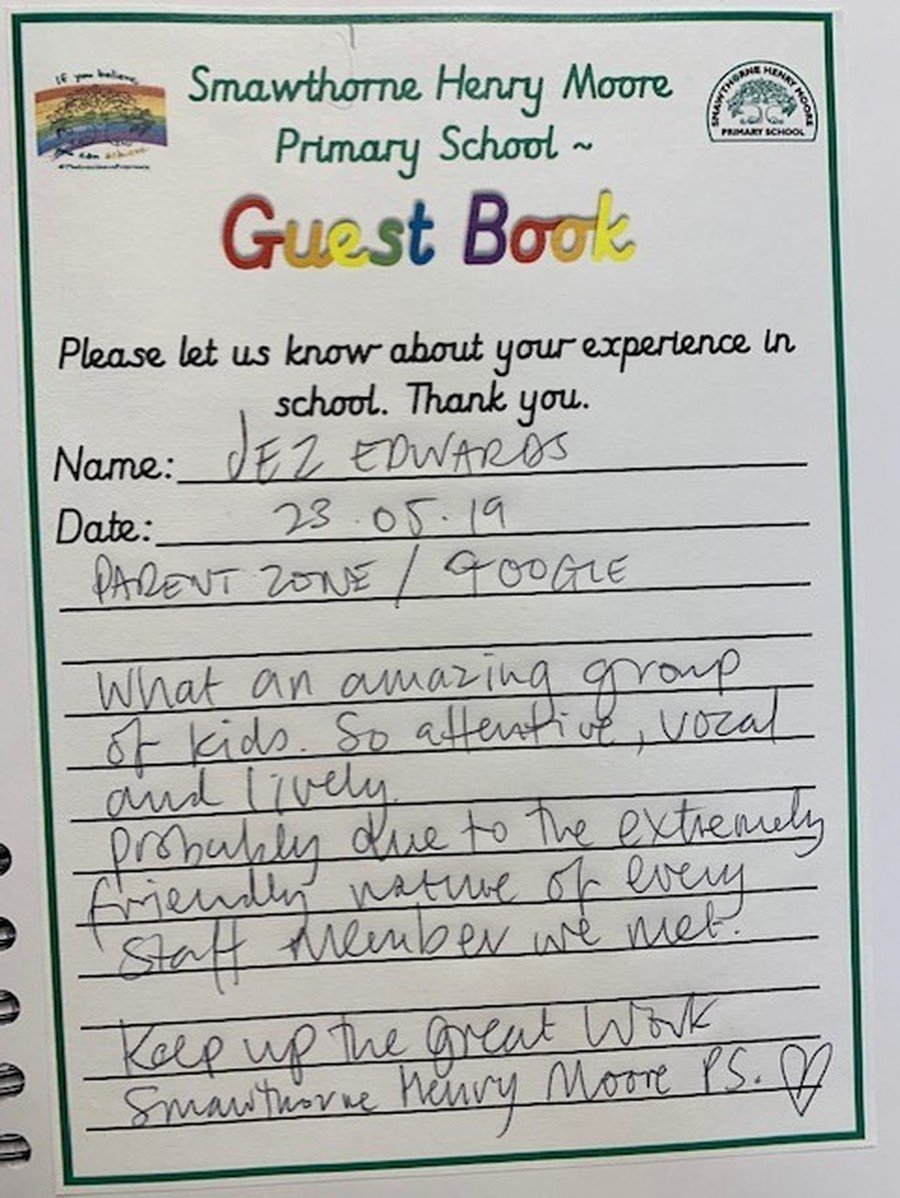 If you believe,
you can achieve
Smawthorne Henry Moore
Primary School ~
SMAWTHORNE HENRY MOORE
PRIMARY SCHOOL
Guest Book
Please let us know about your experience in
school. Thank you.
Name: JEZ EDWARDS
Date: 23.05.19
PARENT ZONE / GOOGLE
What an amazing group
of kids. So attentive, vocal
and lively.
probably due to the extremely
friendly nature of every
staff member we met.
Keep up the great work
Smawthorne Henry Moore PS. ♡